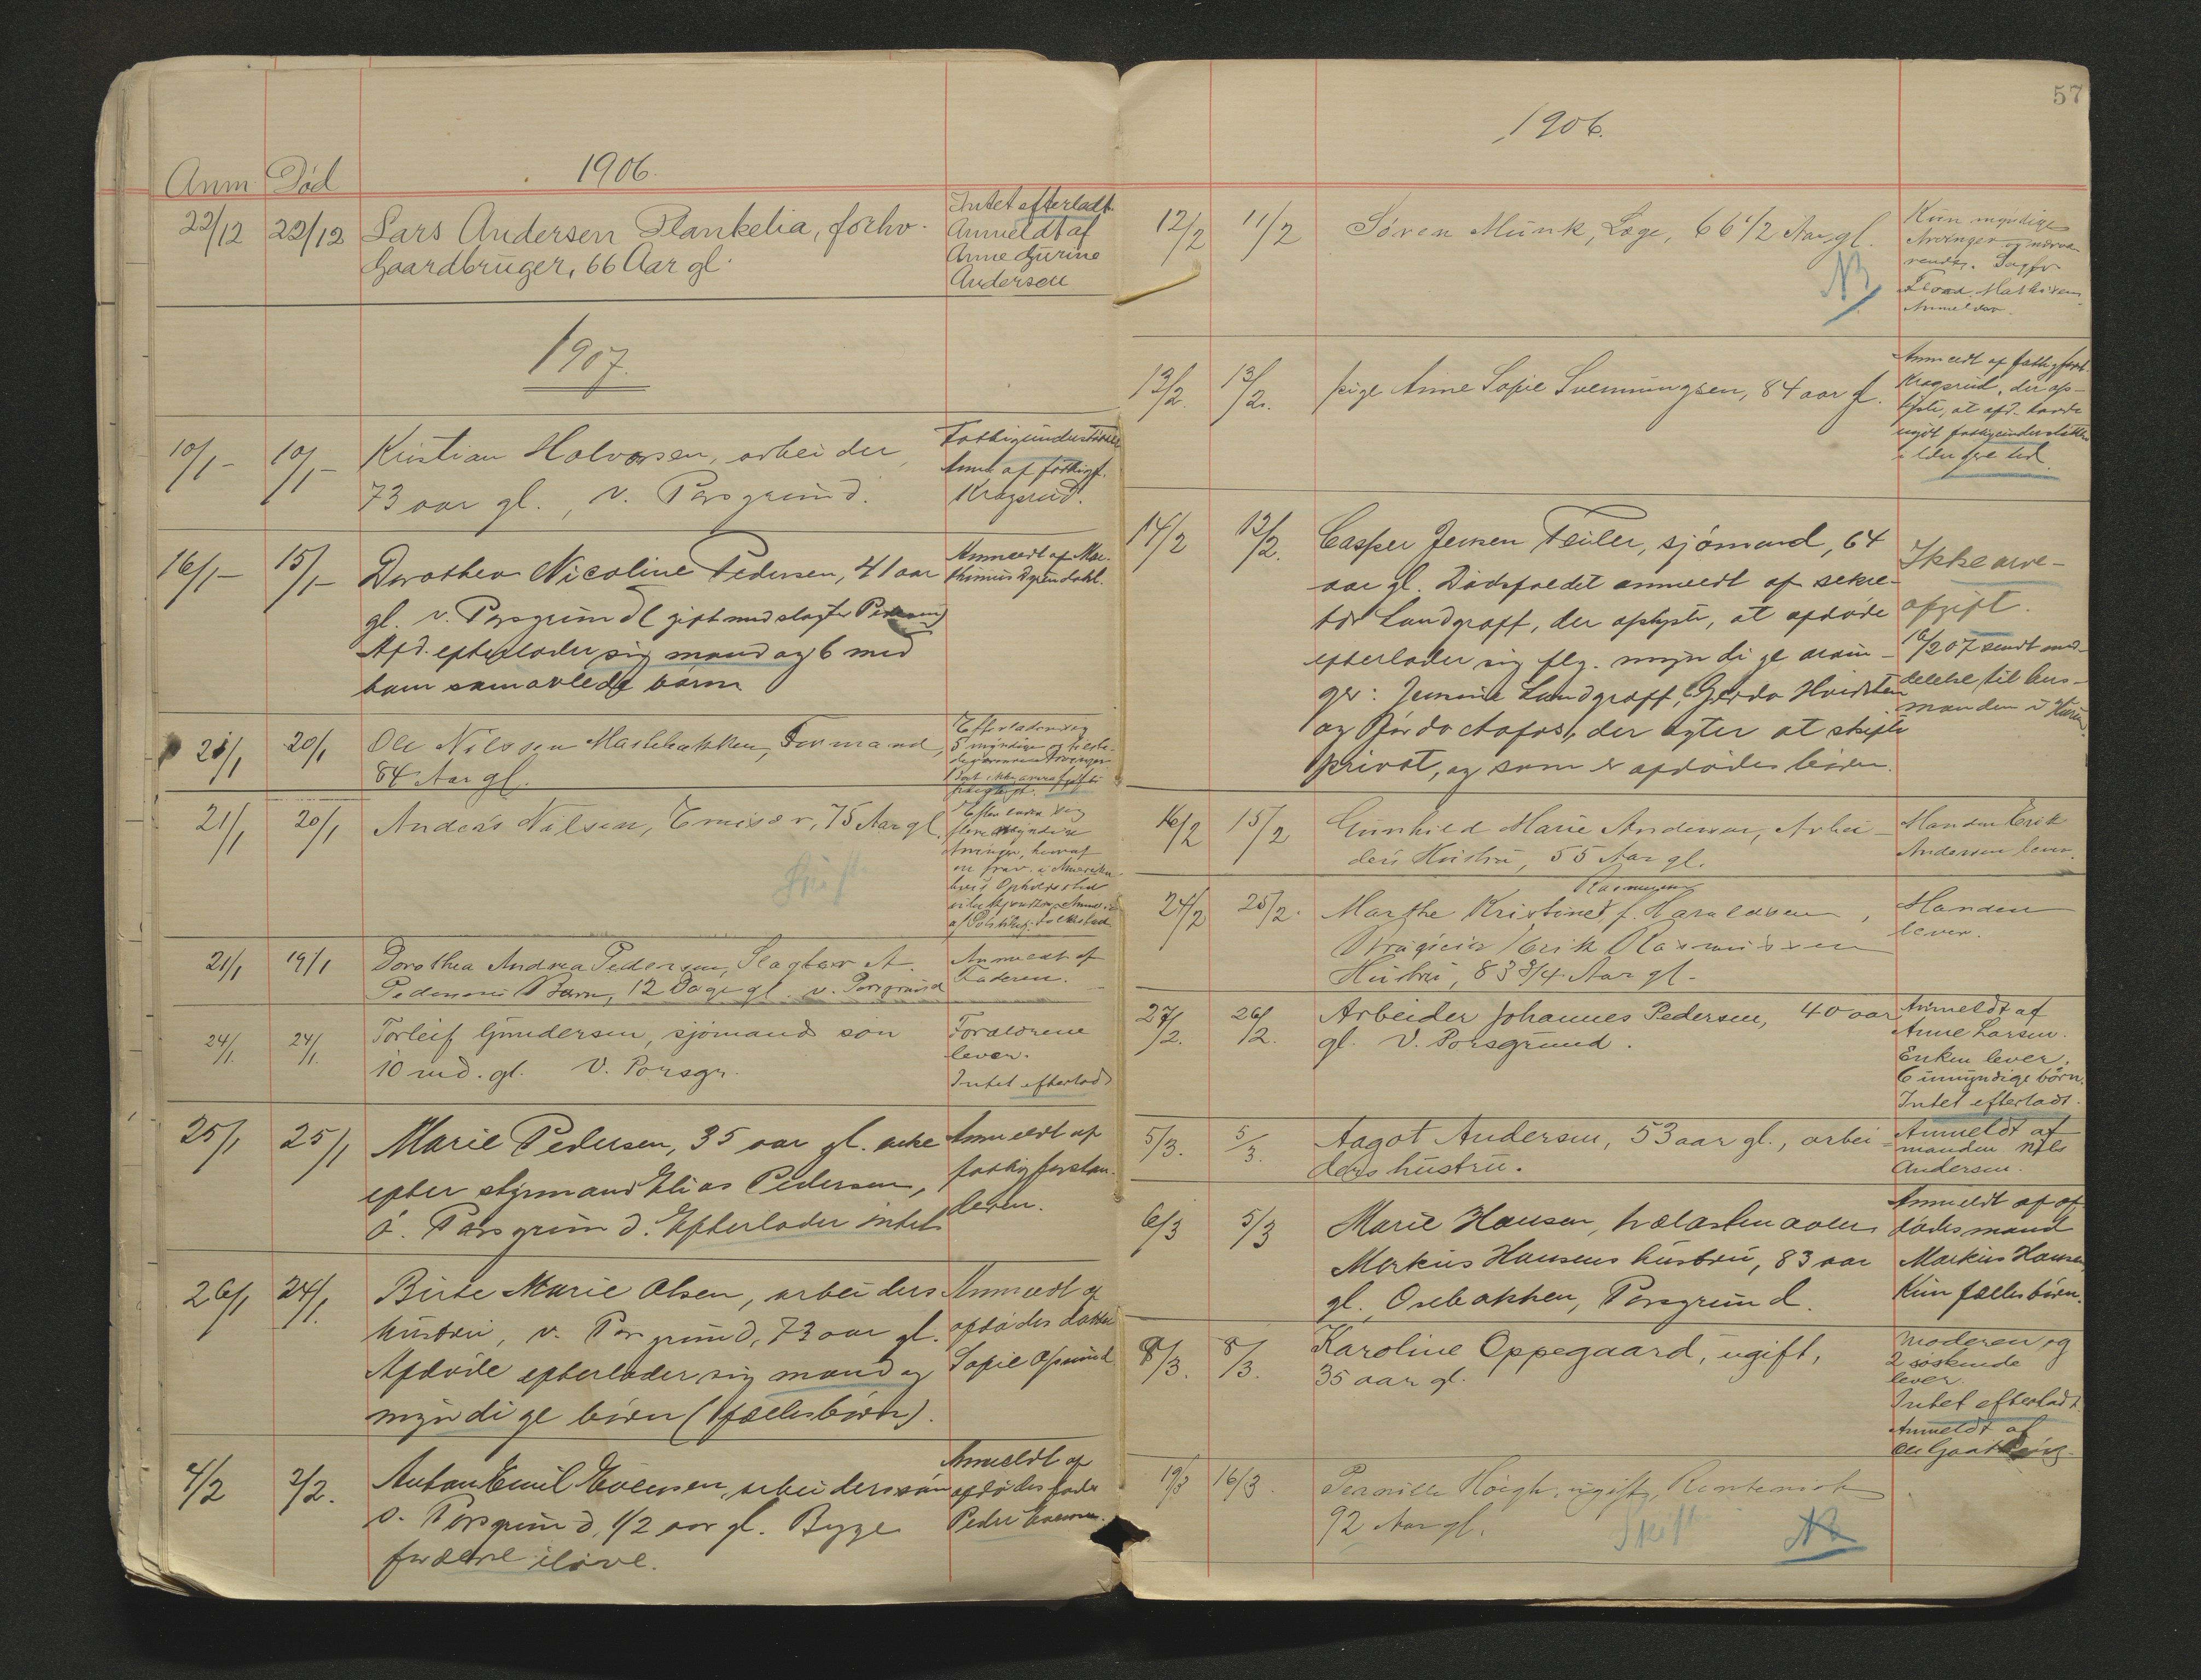 Anm Død 1906.
22/12 22/12 Lars Andersen Plankelia, forhv.
Gaardbruger, 66 Aar gl.
Intet efterladt.
Anmeldt af
Anne Gurine
Andersen
1907.
10/1- 10/1- Kristian Halvorsen, arbeider,
73 aar gl., V. Porsgrund.
Anm. af fattigf.
Kragsrud.
16/1- 15/1- Dorothea Nicoline Pedersen, 41 aar
gl. V. Porsgrund (gift med slagter Pedersen)
Afd. efterlader sig mand og 6 med
ham samavlede børn
Anmeldt af
21/1 20/1 Ole Nilssen Formand,
84 Aar gl.
Efterlader sig
5 myndige
21/1 20/1 Anders Nilsen, 75 Aar gl.
Efterlader sig
flere myndige
Arvinger, hvoraf
en frav. i Amerika
hvis Opholdssted
Skift
21/1 19/1 Dorothea Andrea Pedersen, Slagter A.
Pedersens Barn, 12 Dage gl. v. Porsgrund
Anmeldt af
Faderen.
24/1 24/1 Torleif Gundersen, sjømands søn
10 md. gl. V. Porsgr.
Forældrene
lever.
Intet efterladt
25/1 25/1 Marie Pedersen, 35 aar gl. enke
efter styrmand Elias Pedersen,
Ø. Porsgrund. Efterlader intet
Anmeldt af
fattigforstan-
deren.
26/1 24/1. Birte Marie Olsen, arbeiders
hustru, V. Porsgrund, 73 aar gl.
Afdøde efterlader sig mand og
myndige børn (fællesbørn).
Anmeldt af
afdødes datter
Sofie
4/2 2/2. Anton Emil Evensen, arbeiderssøn
V. Porsgrund, 1/2 aar gl. Begge
forældre ilive.
Anmeldt af
afdødes fader
Peder Evensen.
57
1906.
12/2 11/2 Søren Munk, Læge, 66 1/2 Aar gl.
NB
Kun myndige
Arvinger
Anmelder.
13/2. 13/2. pige Anne Sofie Svennungsen, 84 aar gl.
Anmeldt af fattigforst.
Kragsrud, der op-
lyste, at afd. havde
nydt fattigunderstøttelse
i længere tid.
14/2 13/2. Casper Jensen Feiler, sjømand, 64
aar gl. Dødsfaldet anmeldt af sekre-
tær Landgraff, der oplyste, at afdøde
efterlader sig flg. myndige arvin-
ger: Jensine Landgraff, Gerda Hvidsten
og der agter at skifte
privat, og som er afdødes børn.
Ikke arve-
afgift.
16/2 07 sendt med-
delelse til lens-
manden i
16/2 15/2 Gunhild Marie Andersen, Arbei-
ders Hustru, 55 Aar gl.
Manden Erik
Andersen lever.
24/2 23/2. Marthe Kristine Rasmussen f. Haraldsen,
Erik Rasmussens
Hustru, 83 3/4 Aar gl.
Manden
lever.
27/2. 26/2. Arbeider Johannes Pedersen, 40 aar
gl. V. Porsgrund.
Anmeldt af
Anne Larsen.
Enken lever.
6 umyndige børn.
Intet efterladt.
5/3. 5/3. Aagot Andersen, 53 aar gl., arbei-
ders hustru.
Anmeldt af
manden Nils
Andersen.
6/3 5/3 Marie Hansen,
Markus Hansens hustru, 83 aar
gl. Osebakken, Porsgrund.
Anmeldt af af-
dødes mand
Markus Hansen
Kun fællesbørn.
8/3. 8/3. Karoline Oppegaard, ugift,
35 aar gl.
Moderen og
2 søskende
lever.
Intet efterladt.
Anmeldt af
19/3 16/3. Pernille Høigh, ugift, Rentenist
92 Aar gl.
Skift NB